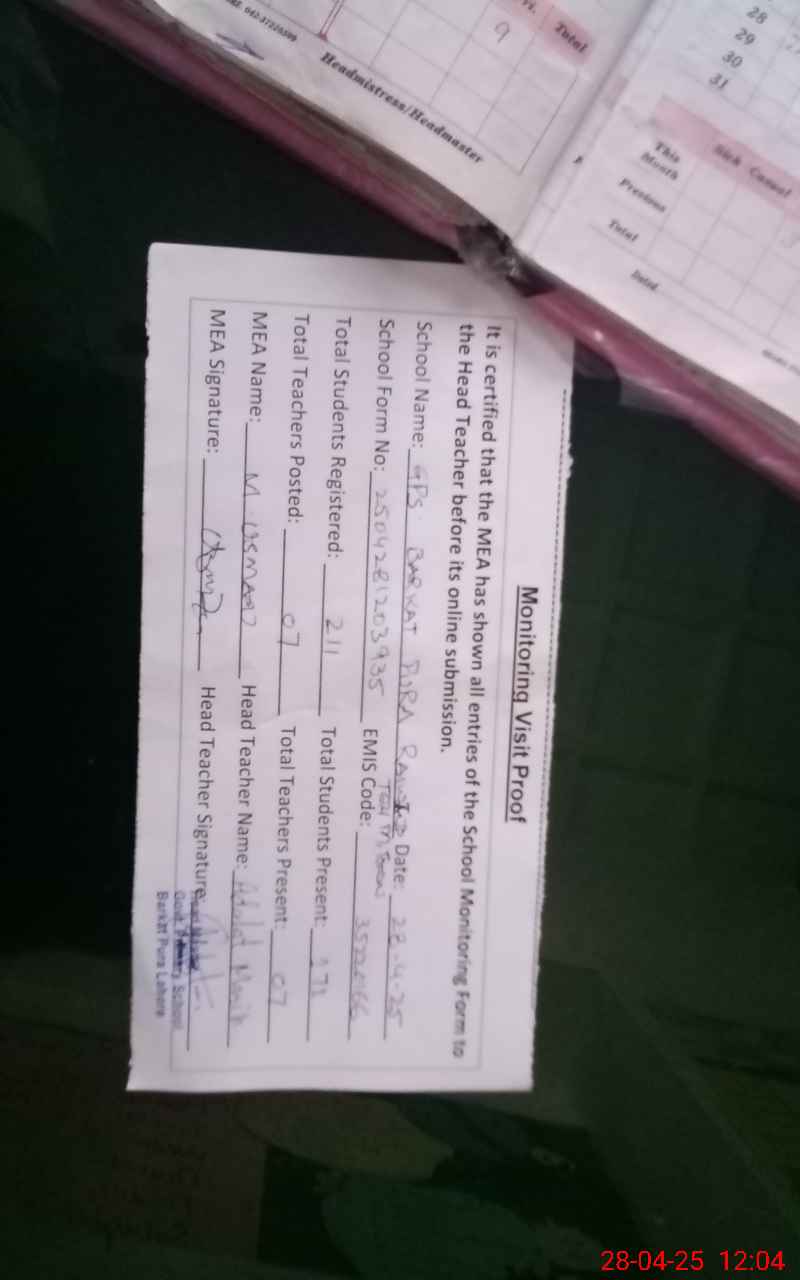 Total
9
Headmistress/Headmaster
28
29
30
31
Sick Casual
This Month
Previous
Total
Dated
Monitoring Visit Proof
It is certified that the MEA has shown all entries of the School Monitoring Form to
the Head Teacher before its online submission.
School Name: GPS BARKAT PURA Date: 28-4-25
School Form No: 2504281203935 EMIS Code:
Total Students Registered: 211 Total Students Present: 171
Total Teachers Posted: 07 Total Teachers Present: 07
MEA Name: M. USMAN Head Teacher Name:
MEA Signature: Head Teacher Signature:
Govt. Primary School
Barkat Pura Lahore
28-04-25 12:04